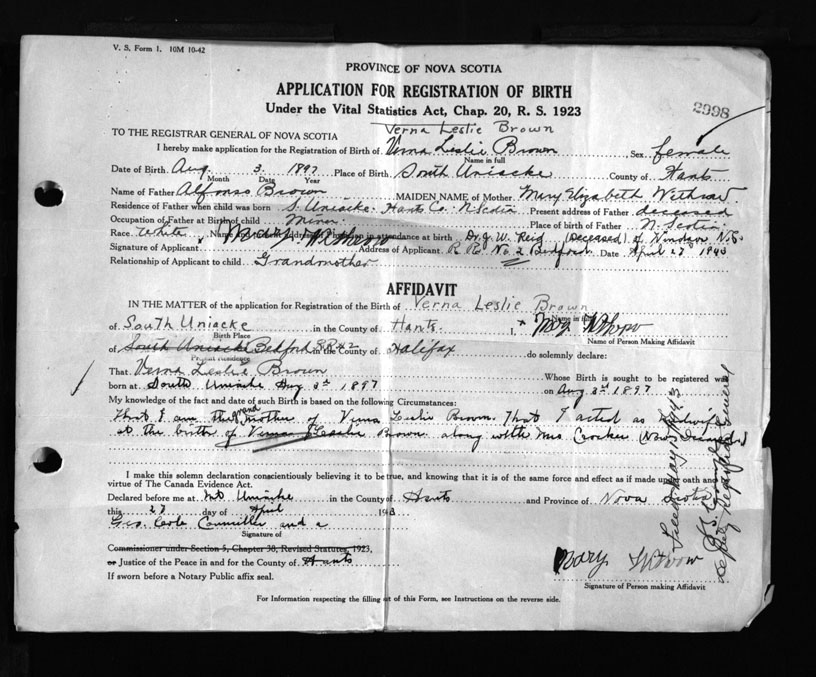 V. S. Form 1. 10M 10-42
PROVINCE OF NOVA SCOTIA
APPLICATION FOR REGISTRATION OF BIRTH
Under the Vital Statistics Act, Chap. 20, R. S. 1923
2998
Verna Leslie Brown
TO THE REGISTRAR GENERAL OF NOVA SCOTIA
I hereby make application for the Registration of Birth of Verna Leslie Brown, Sex female
Name in full
Date of Birth Aug. 3. 1897 Place of Birth South Uniacke County of Hants
Month Date Year
Name of Father Alfonso Brown MAIDEN NAME of Mother Mary Elizabeth Withrow
Residence of Father when child was born S. Uniacke. Hants Co. N Scotia Present address of Father deceased
Occupation of Father at Birth of child Miner Place of birth of Father N. Scotia
Race White Name in attendance at birth Dr. J. W. Reid (Deceased) of Windsor N.S.
Signature of Applicant Mary Withrow Address of Applicant R R No. 2 Bedford Date April 27 1943
Relationship of Applicant to child Grandmother
AFFIDAVIT
IN THE MATTER of the application for Registration of the Birth of Verna Leslie Brown
Name in full
of South Uniacke in the County of Hants. I, x Mary Withrow
Birth Place Name of Person Making Affidavit
of South Uniacke Bedford RR #2 in the County of Halifax do solemnly declare:
Present Residence
That Verna Leslie Brown Whose Birth is sought to be registered was
born at South Uniacke Aug 3rd 1897 on Aug 3rd 1897
My knowledge of the fact and date of such Birth is based on the following Circumstances:
That I am the grand mother of Verna Leslie Brown. That I acted as Midwife
at the birth of Verna Leslie Brown along with Mrs Crocker (Now Deceased)
I make this solemn declaration conscientiously believing it to be true, and knowing that it is of the same force and effect as if made upon oath and
virtue of The Canada Evidence Act.
Declared before me at Mt Uniacke in the County of Hants and Province of Nova Scotia
this 27 day of April 1943
Geo. Cole Councillor and a
Signature of
Commissioner under Section 5, Chapter 38, Revised Statutes, 1923,
or Justice of the Peace in and for the County of Hants
If sworn before a Notary Public affix seal.
Mary Withrow
Signature of Person making Affidavit
For Information respecting the filling out of this Form, see Instructions on the reverse side.
Deputy Registrar General